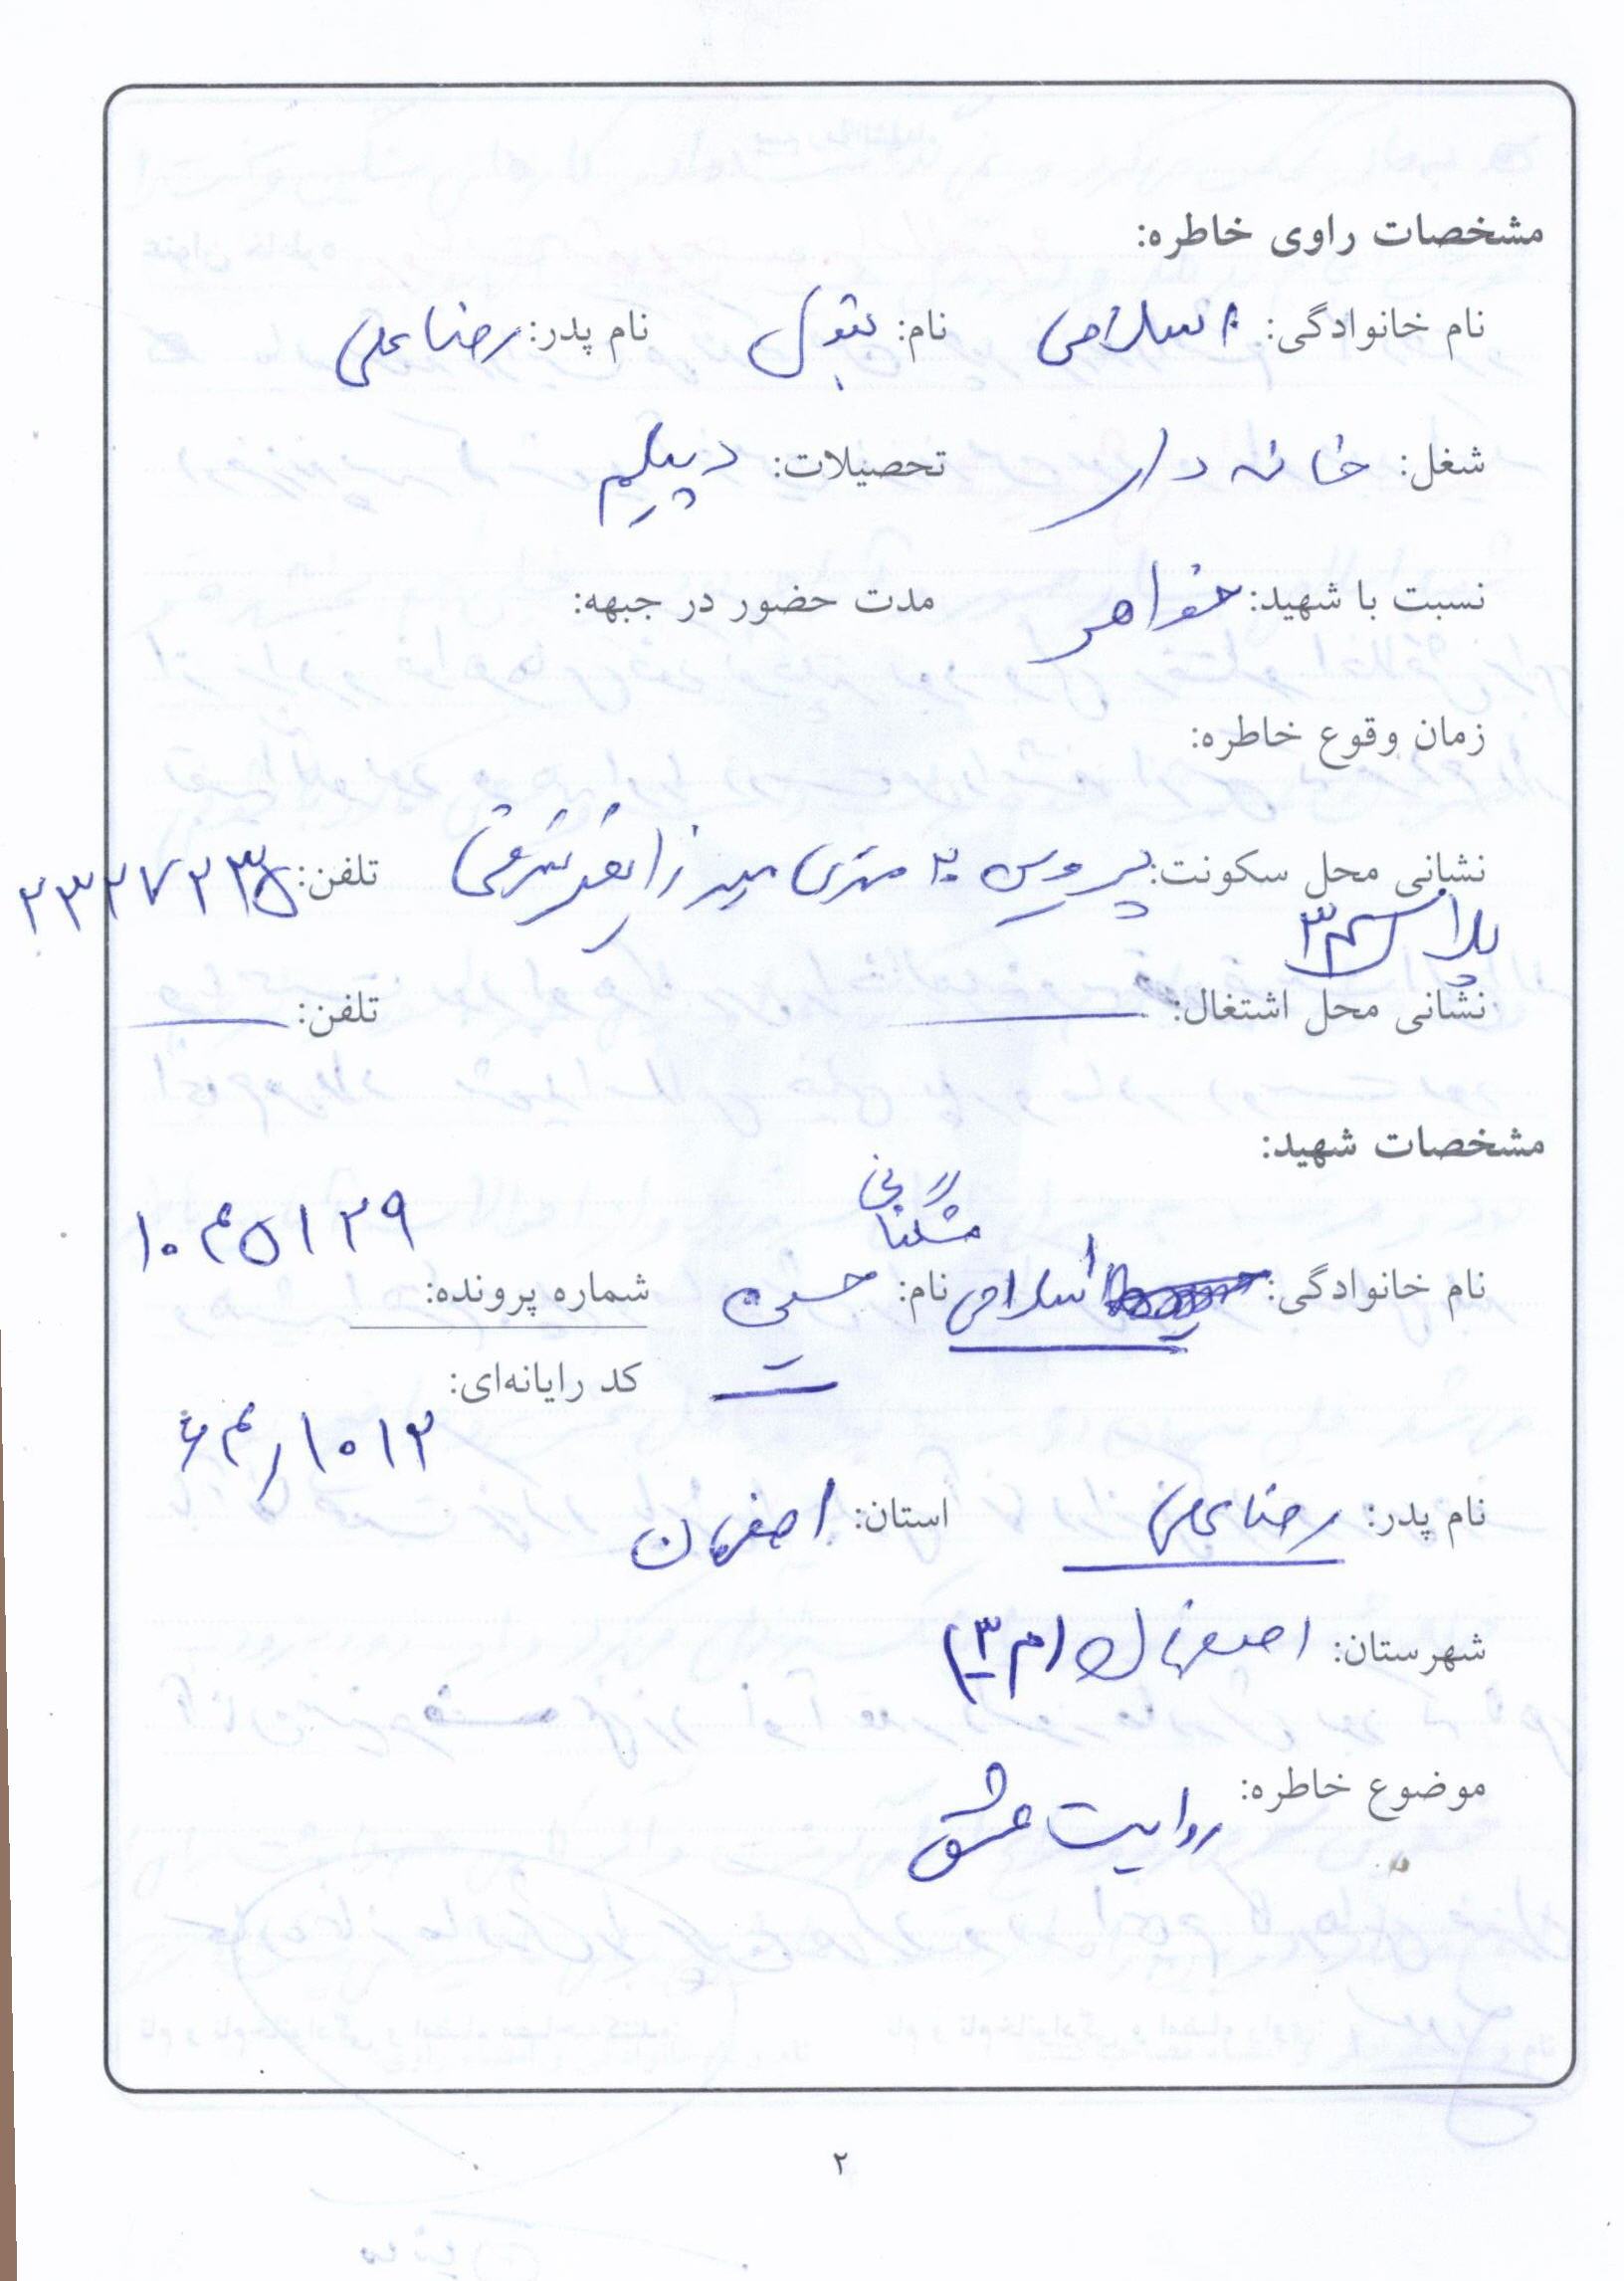 مشخصات راوی خاطره:
نام خانوادگی: اسلامی نام: بتول نام پدر: رضاعلی
شغل: خانه دار تحصیلات: دیپلم
نسبت با شهید: خواهر مدت حضور در جبهه:
زمان وقوع خاطره:
نشانی محل سکونت: ۲۰ متری میرزا شرقی تلفن: ۲۳۲۷۲۳۵
پلاک ۳۴
نشانی محل اشتغال: تلفن:
مشخصات شهید:
مشکنانی
نام خانوادگی: اسلامی نام: حسین شماره پرونده: ۱۰۴۵۱۲۹
کد رایانه‌ای: ۶۴ر۱۰۱۲
نام پدر: رضاعلی استان: اصفهان
شهرستان: اصفهان (م۳)
موضوع خاطره: روایت عشق
۲